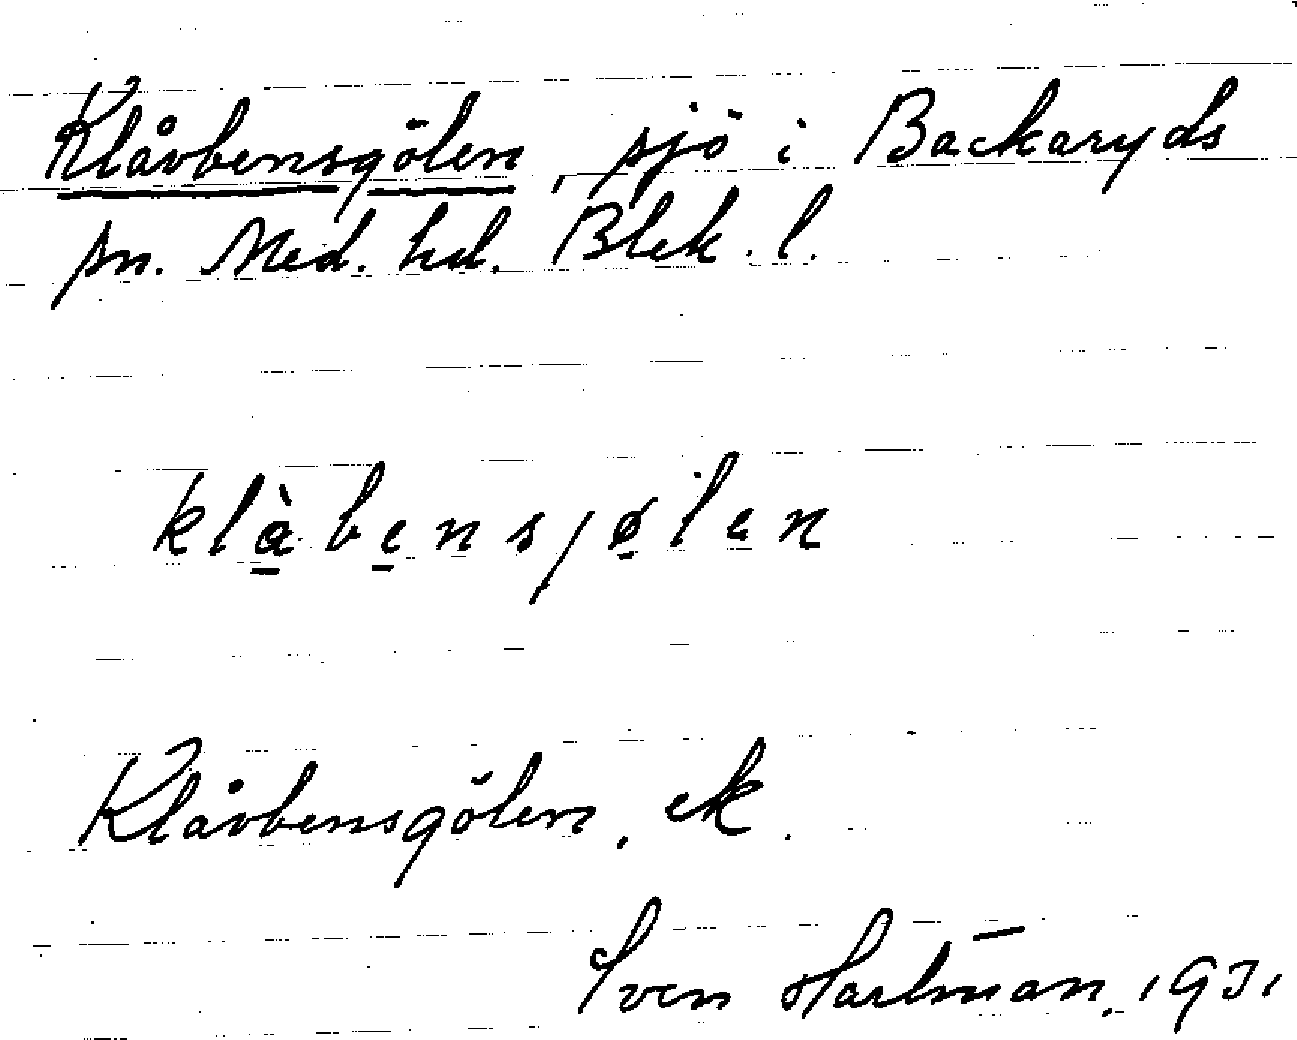 Klåvbensgölen, sjö i Backaryds
sn. Med. hd. Blek. l.
klàbensjølen
Klåvbensgölen, ek.
Sven Hartman, 1931